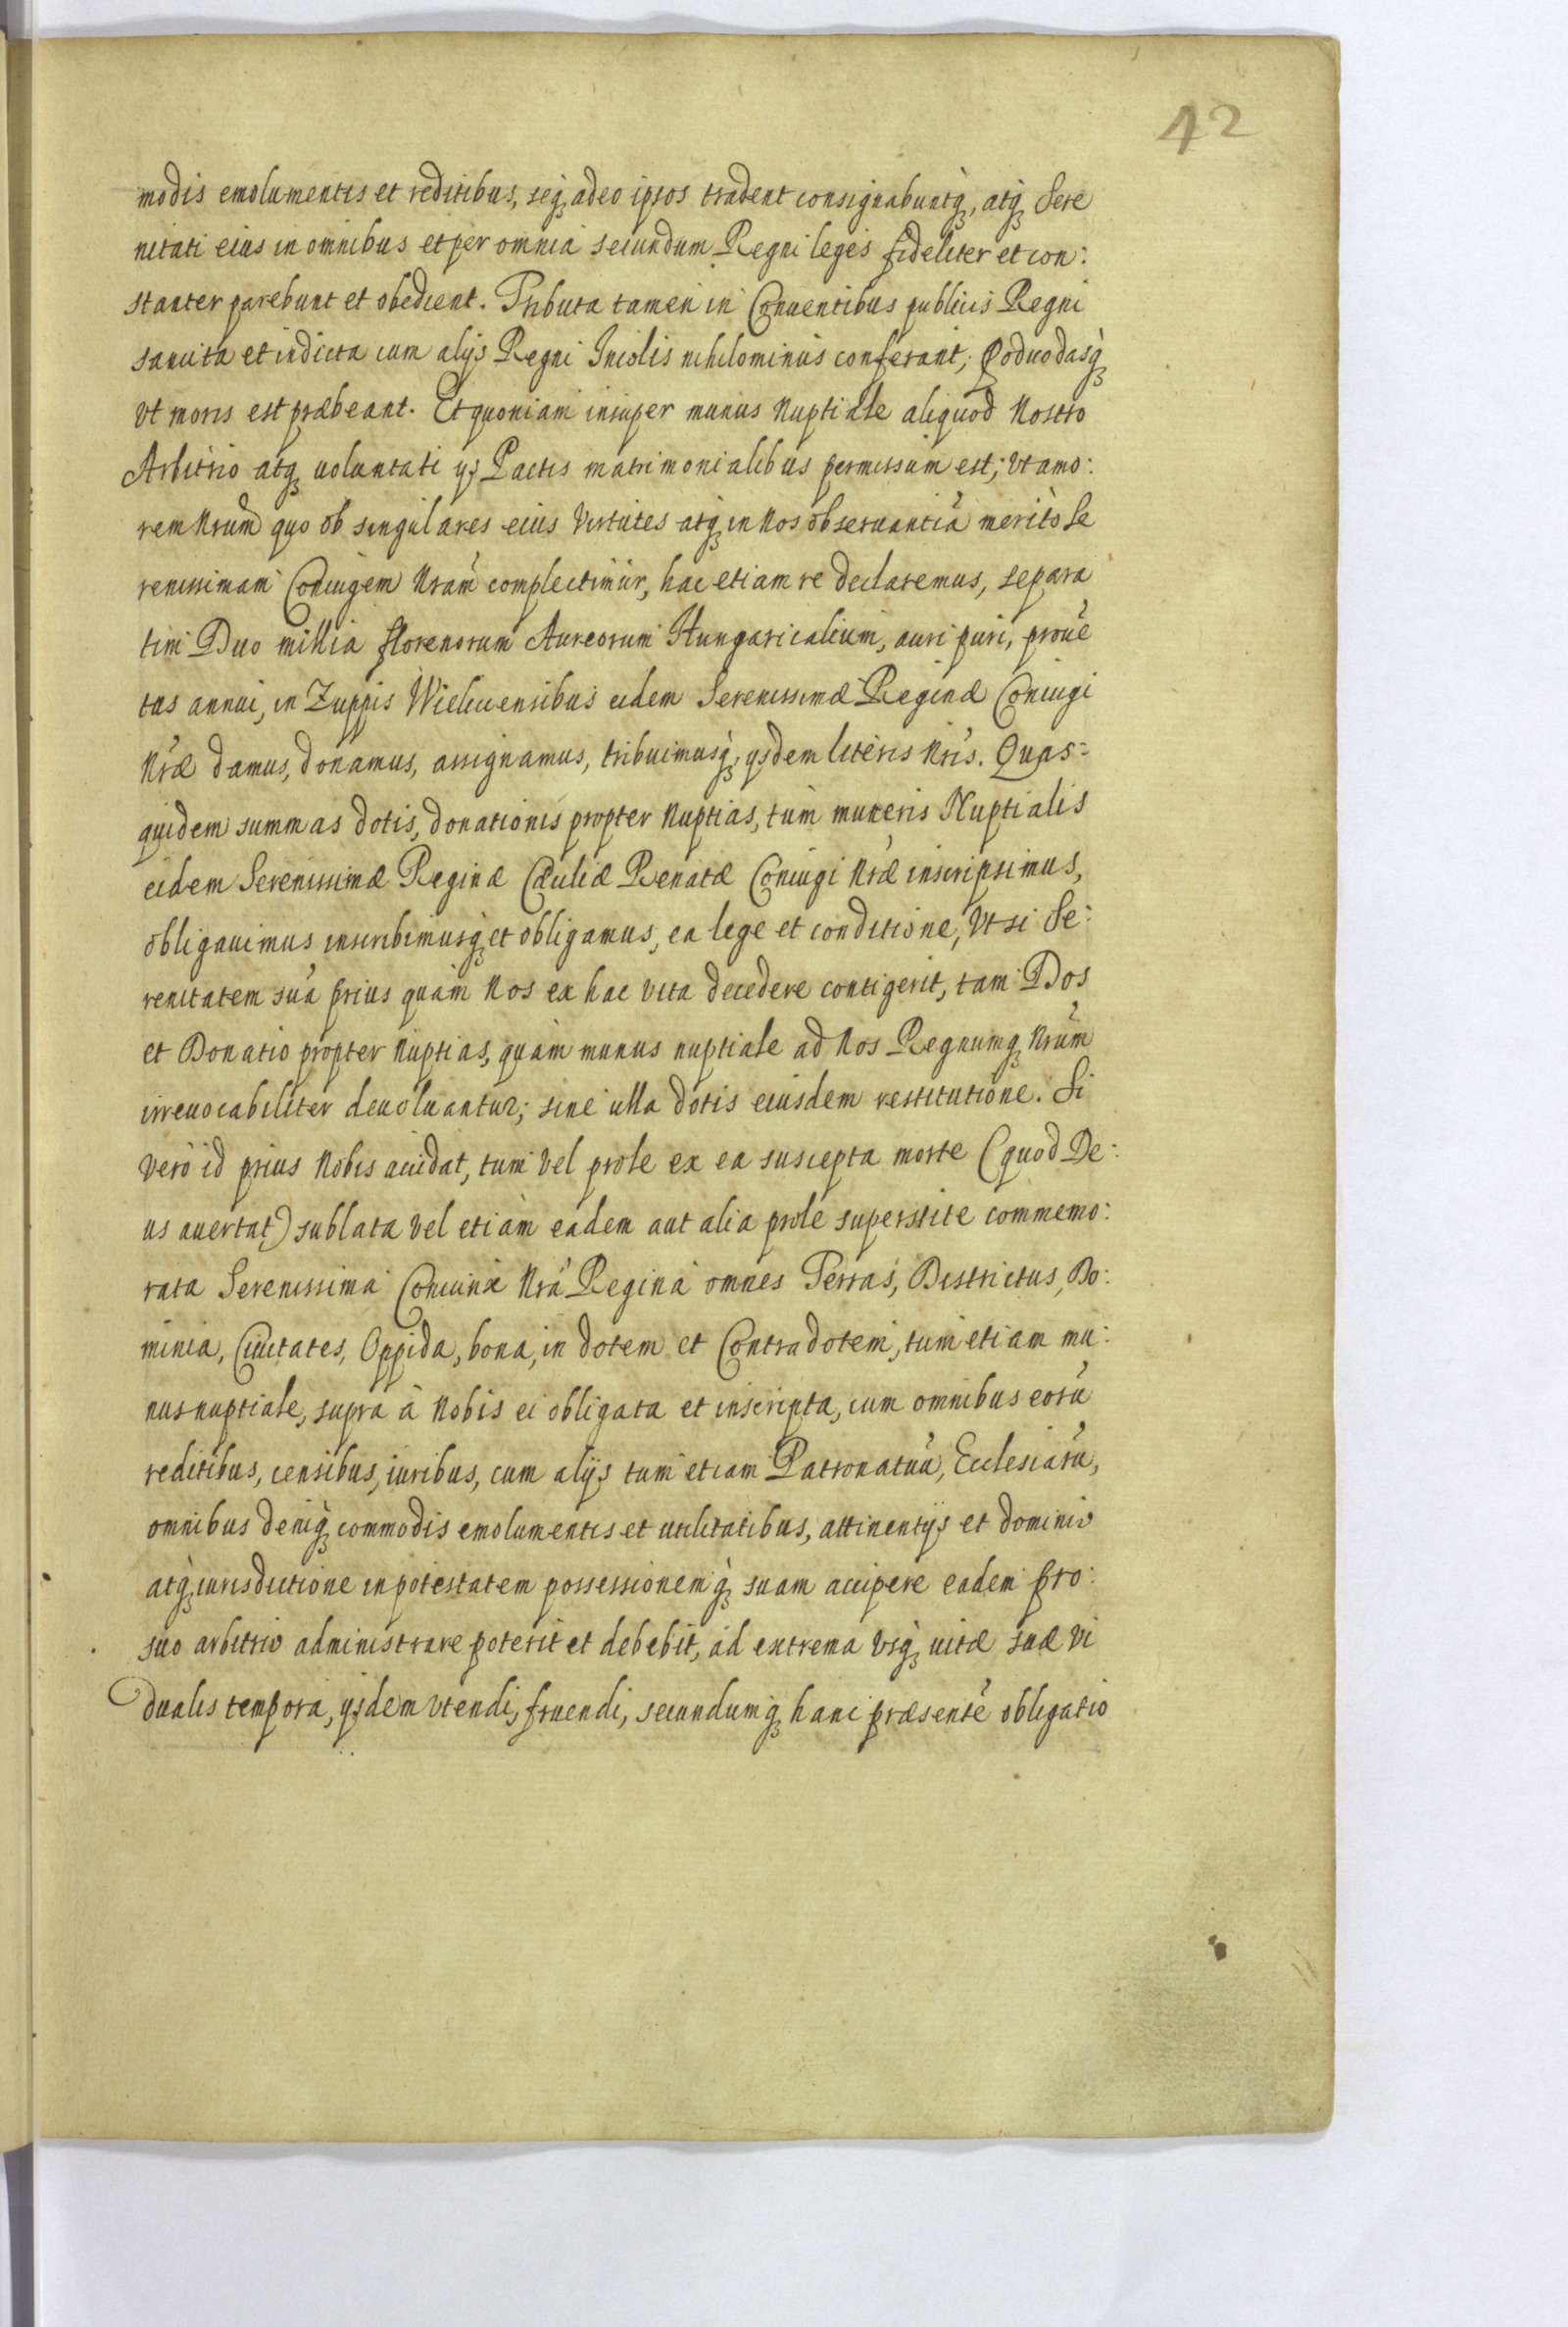 42
modis emolumentis et reditibus, seq₃ adeo ipsos tradent consignabuntq₃, atq₃ Sere
nitati eius in omnibus et per omnia secundum Regni leges fideliter et con:
stanter parebunt et obedient. Tributa tamen in Conuentibus publicis Regni
sancita et indicta cum alijs Regni Incolis nihilominus conferant, Podwodasq₃
vt moris est præbeant. Et quoniam insuper munus Nuptiale aliquod Nostro
Arbitrio atq₃ uoluntati ijs Pactis matrimonialibus permissum est; vt amo:
rem Nrum̃ quo ob singulares eius Virtutes atq₃ in Nos obseruantiã meritò Se
renissimam Coniugem Nram̃ complectimur, hac etiam re declaremus, separa
tim Duo millia florenorum Aureorum Hungaricalium, auri puri, prouẽ
tus annui, in Zuppis Wielicensibus eidem Serenissimæ Reginæ Coniugi
Nræ̃ damus, donamus, assignamus, tribuimusq₃, ijsdem literis Nris̃. Quas:
quidem summas dotis, donationis propter Nuptias, tùm muneris Nuptialis
eidem Serenissimæ Reginæ Cæciliæ Renatæ Coniugi Nræ̃ inscripsimus,
obligauimus inscribimusq₃ et obligamus, ea lege et conditione, Vt si Se:
renitatem suã prius quàm Nos ex hac vita decedere contigerit, tam Dos
et Donatio propter Nuptias, quàm munus nuptiale ad Nos Regnumq₃ Nrũm
irreuocabiliter deuoluantur; sine ulla dotis eiusdem restitutione. Si
verò id prius Nobis accidat, tum vel prole ex ea suscepta morte (quod De:
us auertat) sublata vel etiàm eadem aut alia prole superstite commemo:
rata Serenissima Coniunx Nrã Regina omnes Terras, Districtus, Do:
minia, Ciuitates, Oppida, bona, in dotem et Contradotem, tum etiam mu:
nus nuptiale, supra à Nobis ei obligata et inscripta, cum omnibus eorũ
reditibus, censibus, iuribus, cum alijs tum etiam Patronatuũ, Ecclesiarũ,
omnibus deniq₃ commodis emolumentis et utilitatibus, attinentijs et dominio
atq₃ iurisdictione in potestatem possessionemq₃ suam accipere eadem pro:
suo arbitrio administrare poterit et debebit, ad extrema vsq₃ uitæ suæ vi
dualis tempora, ijsdem vtendi, fruendi, secundumq₃ hanc præsentẽ obligatio